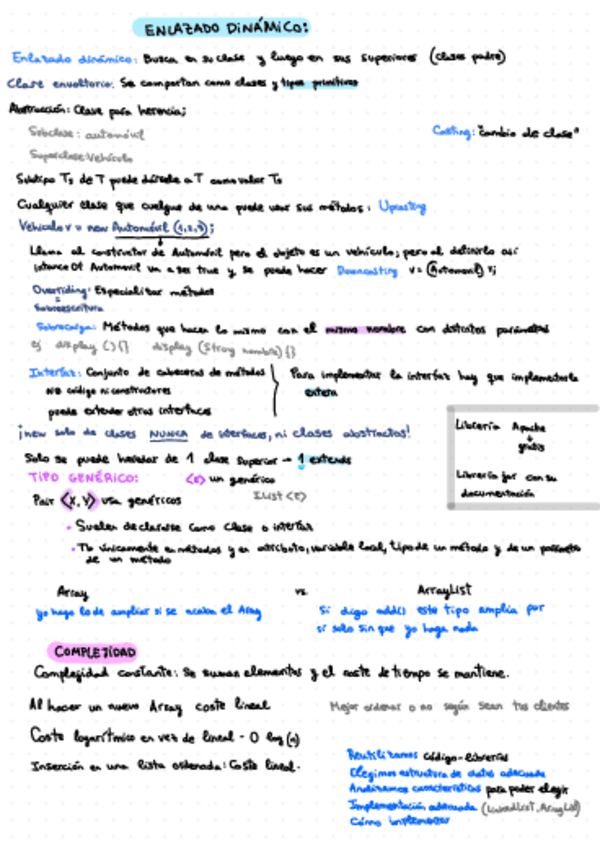 ENLAZADO DINÁMICO:
Enlazado dinámico: Busca en su clase y luego en sus superiores (clases padre)
Clase envoltorio: Se comportan como clases y tipos primitivos
Abstracción: Clase para herencia;
Subclase: automóvil
Casting: "cambio de clase"
Superclase: Vehículo
Subtipo Ts de T puede dársele a T como valor Ts
Cualquier clase que cuelgue de una puede usar sus métodos: Upcasting
Vehiculo v = new Automóvil (1,2,3);
Llama al constructor de Automóvil pero el objeto es un vehículo; pero al definirlo así
instance Of Automovil va a ser true y se puede hacer Downcasting v = (Automovil) v;
Overriding: Especializar métodos
Sobreescritura
Sobrecarga: Métodos que hacen lo mismo con el mismo nombre con distintos parámetros
ej display () {} display (String nombre) {}
Interfaz: Conjunto de cabeceras de métodos
No código ni constructores
puede extender otras interfaces
Para implementar la interfaz hay que implementarla
entera
¡new solo de clases NUNCA de interfaces, ni clases abstractas!
Librería Apache
gratis
Librería jar con su
documentación
Solo se puede heredar de 1 clase superior → 1 extends
TIPO GENÉRICO: <E> un genérico
Pair <X, Y> usa genéricos IList <E>
• Suelen declararse como clase o interfaz
• Tb únicamente en métodos y en atributo, variable local, tipo de un método y de un parámetro
de un método
Array vs. ArrayList
yo hago lo de ampliar si se acaba el Array
Si digo add() este tipo amplía por
sí solo sin que yo haga nada
COMPLEJIDAD
Complejidad constante: Se suman elementos y el coste de tiempo se mantiene.
Al hacer un nuevo Array coste lineal
Mejor ordenar o no según sean tus clientes
Coste logarítmico en vez de lineal - O log (n)
Inserción en una lista ordenada: Coste lineal.
Reutilizamos código - librerías
Elegimos estructura de datos adecuada
Analizamos características para poder elegir
Implementación adecuada (LinkedList, ArrayList)
Cómo implementar